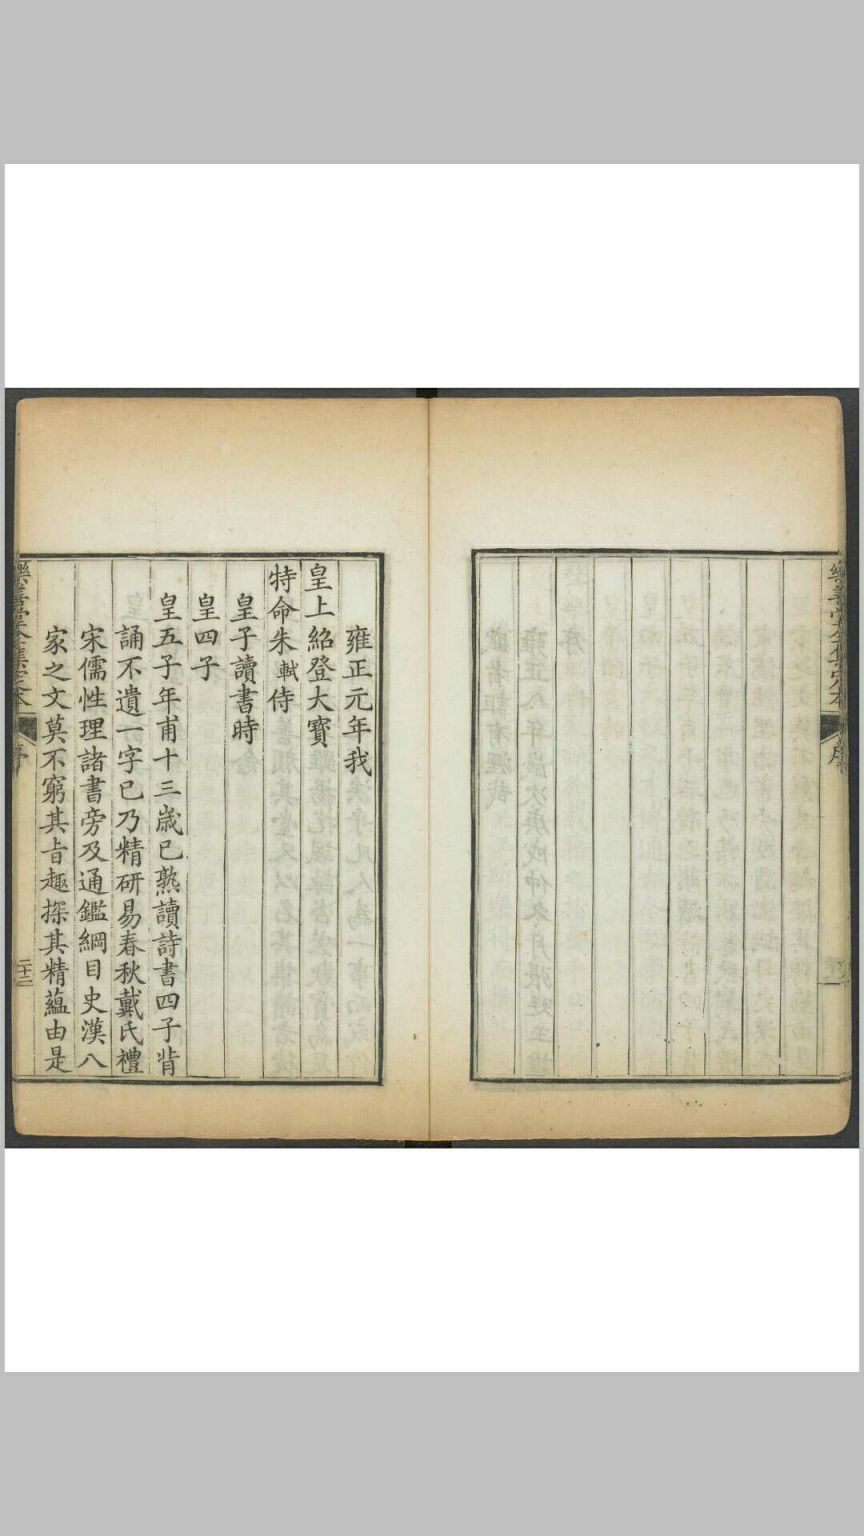 雍正元年我
皇上紹登大寶
特命朱軾侍
皇子讀書時
皇四子
皇五子年甫十三歲已熟讀詩書四子背
誦不遺一字已乃精研易春秋戴氏禮
宋儒性理諸書旁及通鑑綱目史漢八
家之文莫不窮其旨趣探其精蘊由是
樂善堂全集定本
序
樂善堂全集定本
序